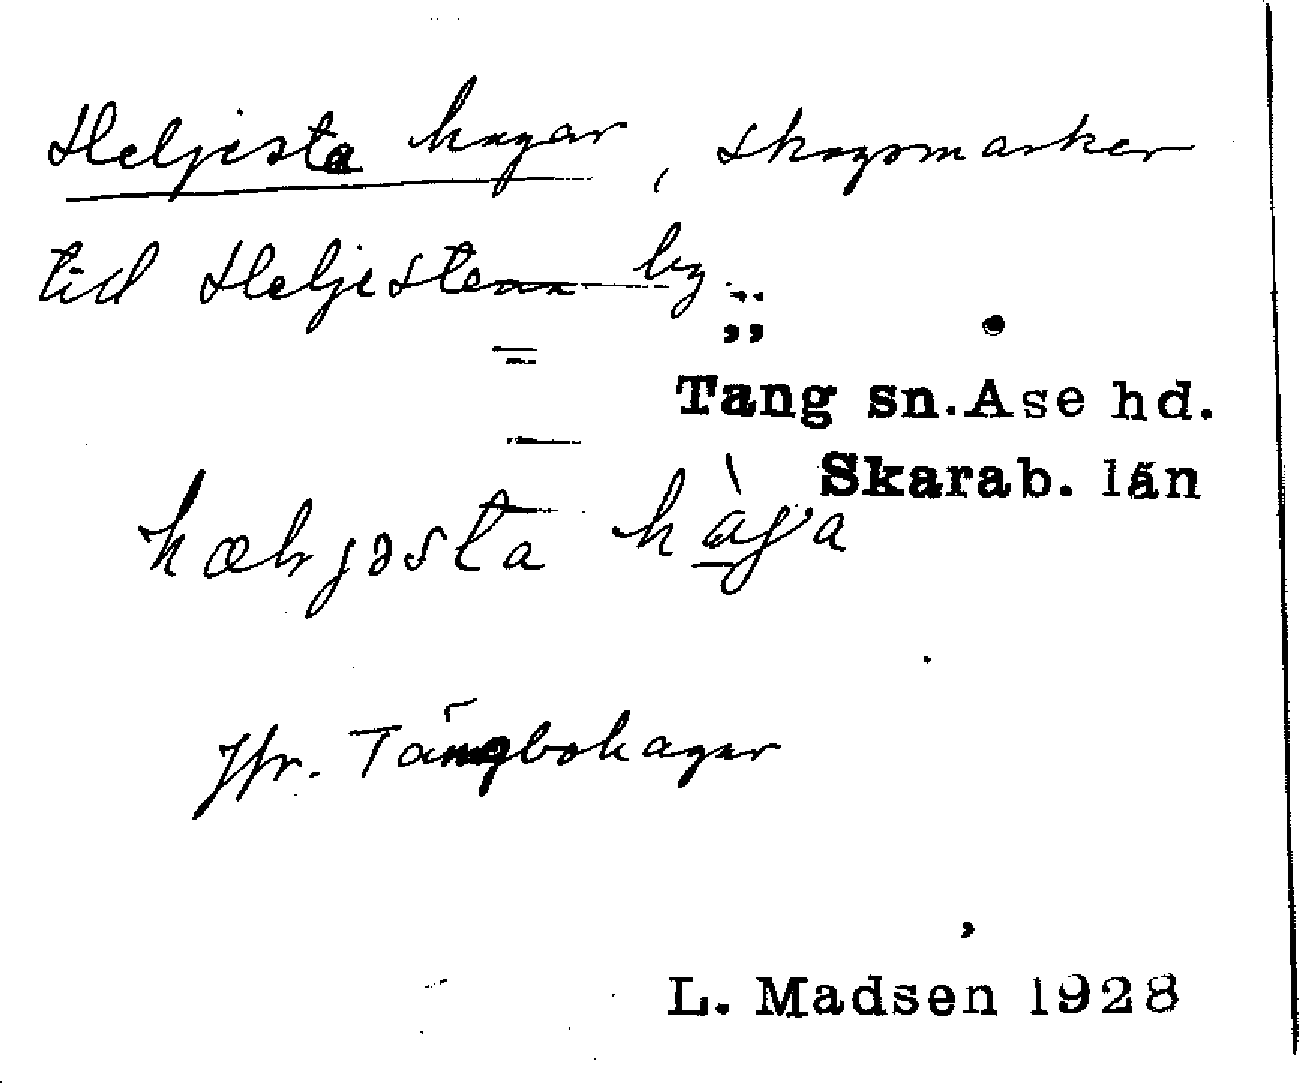 Heljesta hagar, skogsmarker
till Heljesten by.
Täng sn. Åse hd.
Skarab. län
hæljəsta hàga
Jfr. Tängbohagar
L. Madsen 1928